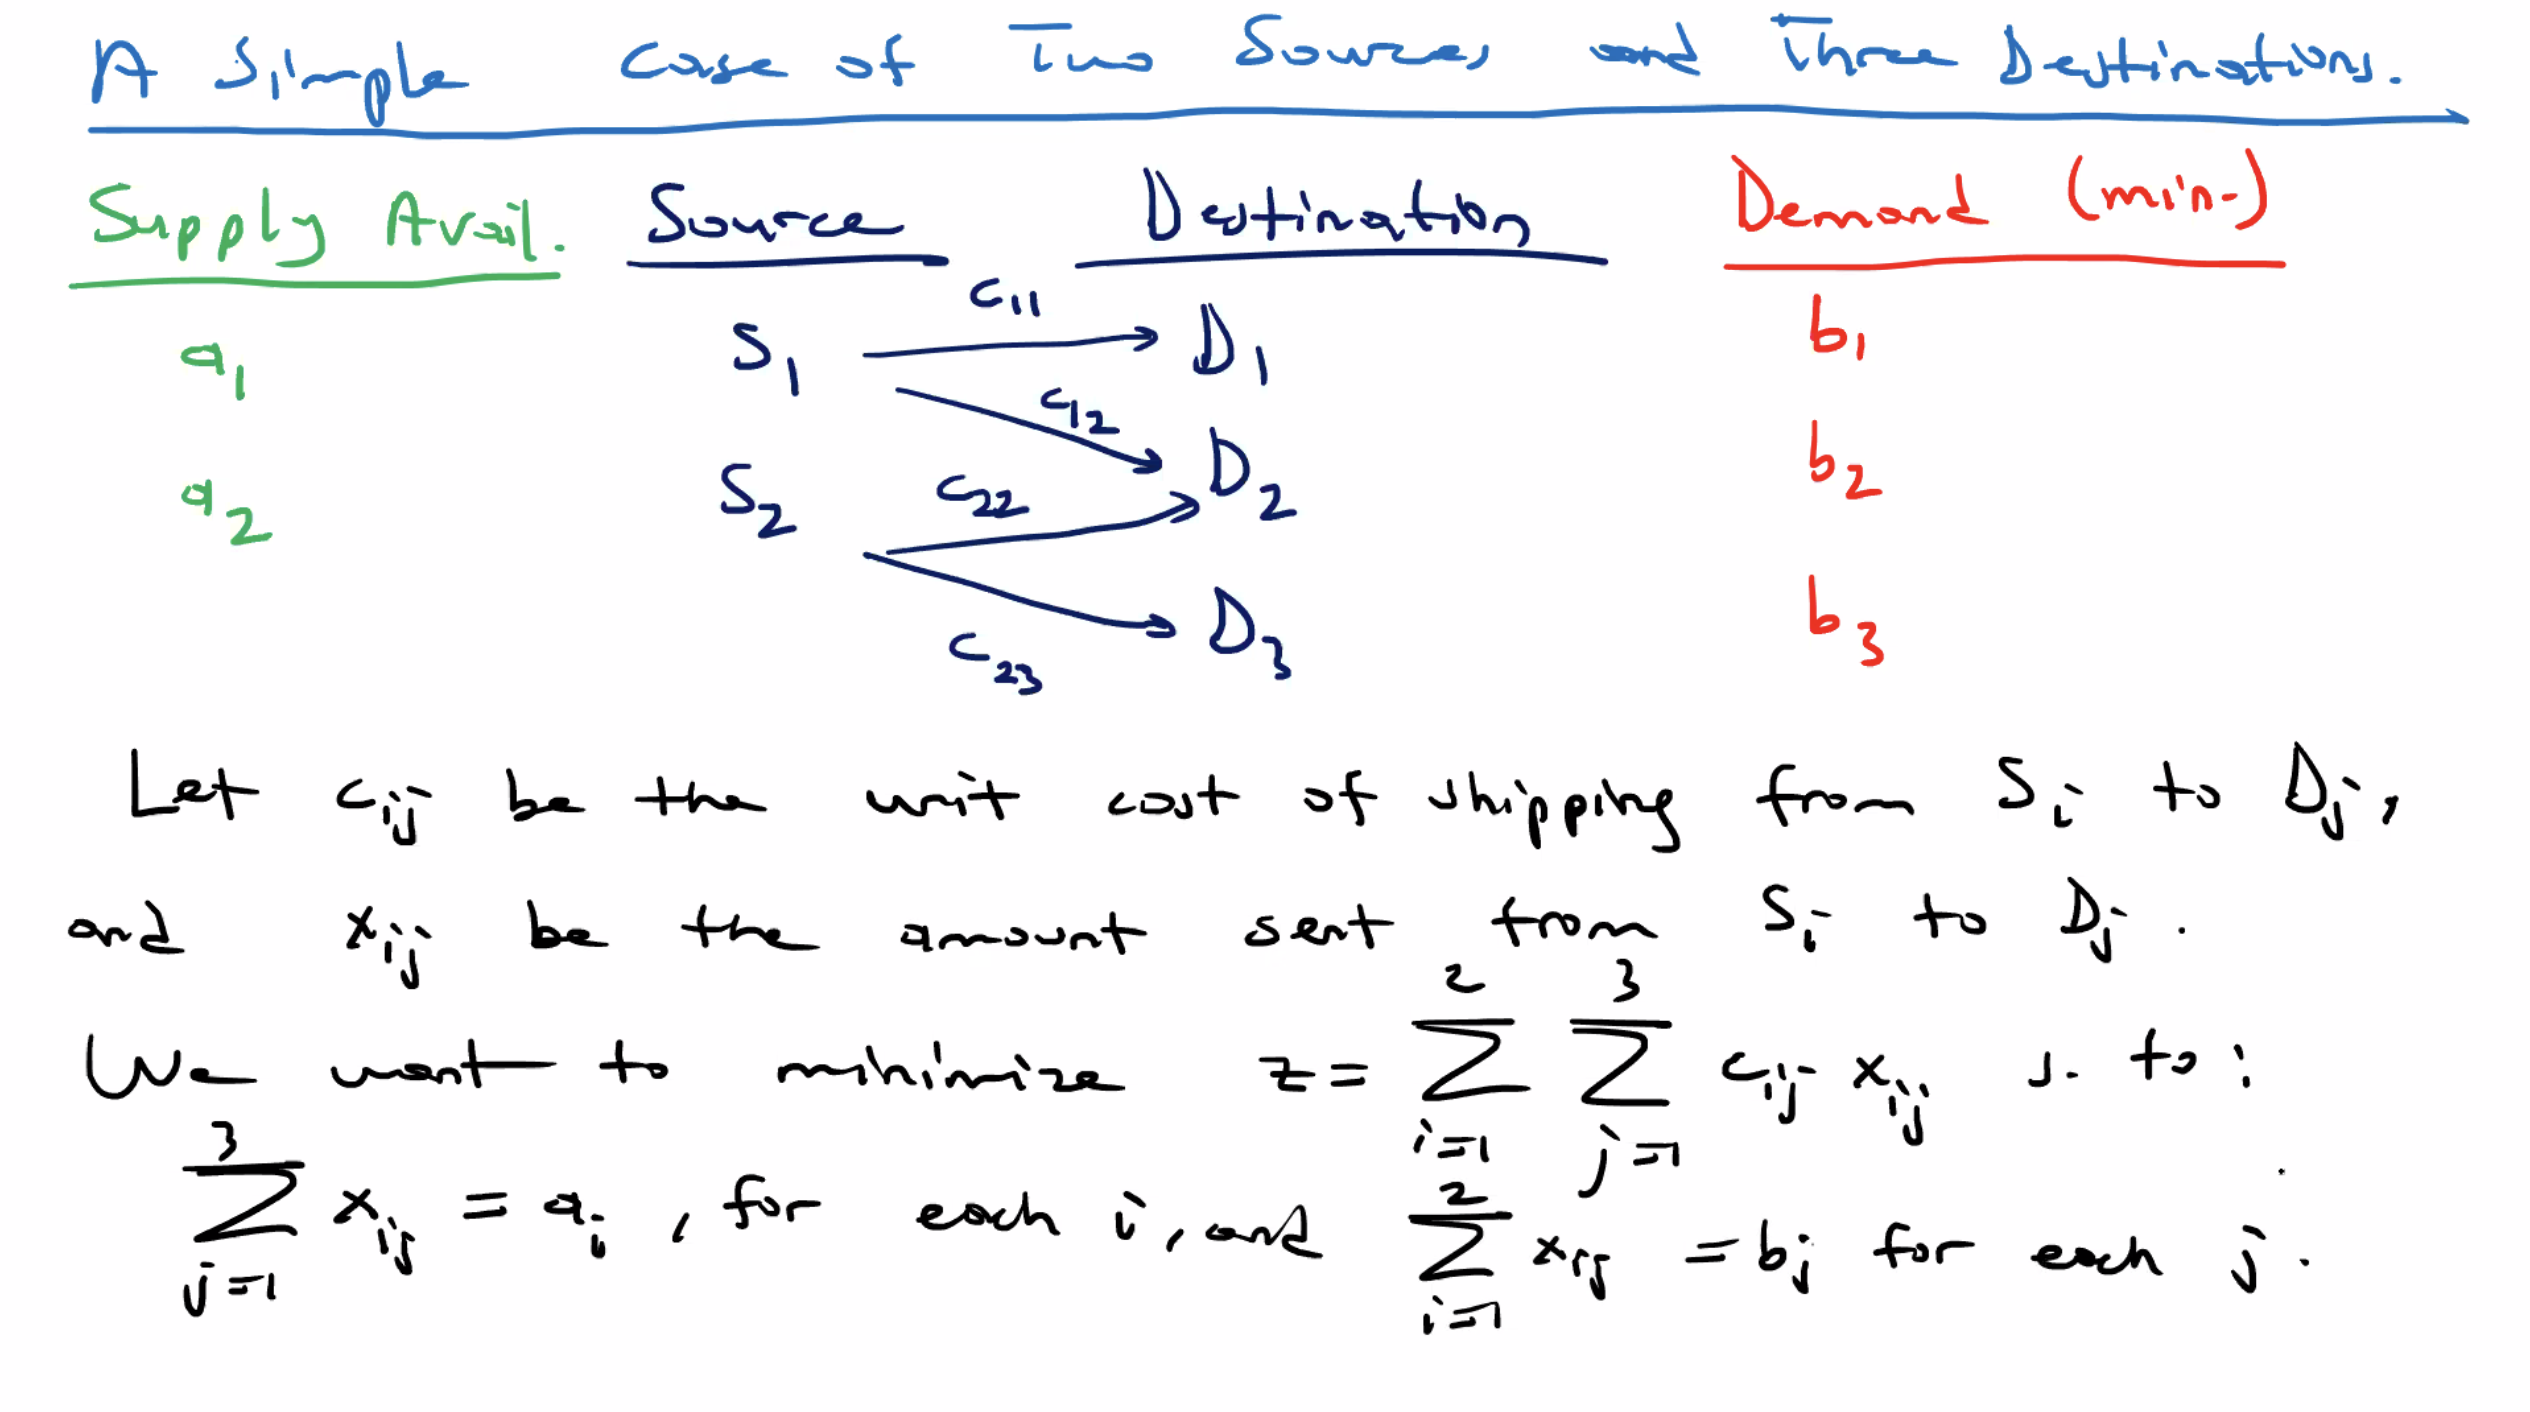 A Simple Case of Two Sources and Three Destinations.
Supply Avail. Source Destination Demand (min.)
c₁₁
a₁ S₁ D₁ b₁
c₁₂
a₂ S₂ c₂₂ D₂ b₂
D₃ b₃
c₂₃
Let cᵢⱼ be the unit cost of shipping from Sᵢ to Dⱼ,
and xᵢⱼ be the amount sent from Sᵢ to Dⱼ.
We want to minimize z = ∑_{i=1}^{2} ∑_{j=1}^{3} cᵢⱼ xᵢⱼ s. to:
∑_{j=1}^{3} xᵢⱼ = aᵢ, for each i, and ∑_{i=1}^{2} xᵢⱼ = bⱼ for each j.